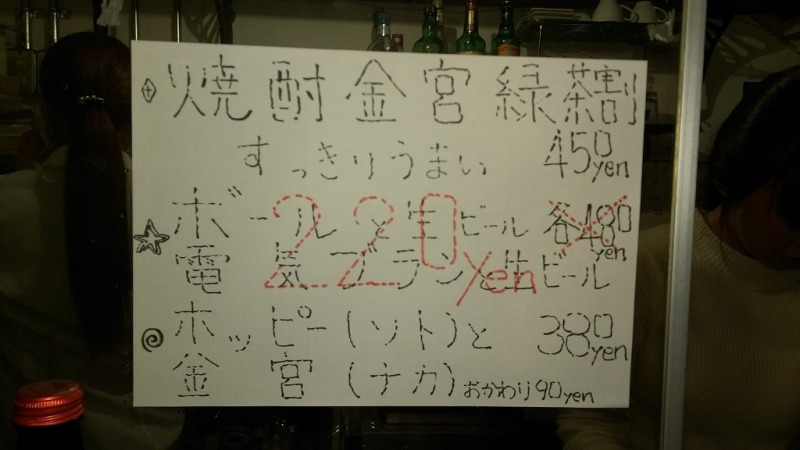 焼酎金宮緑茶割
すっきりうまい 450yen
ボールと生ビール 各480yen
220yen
電気ブランと生ビール
ホッピー(ソト)と 380yen
金宮(ナカ)おかわり90yen